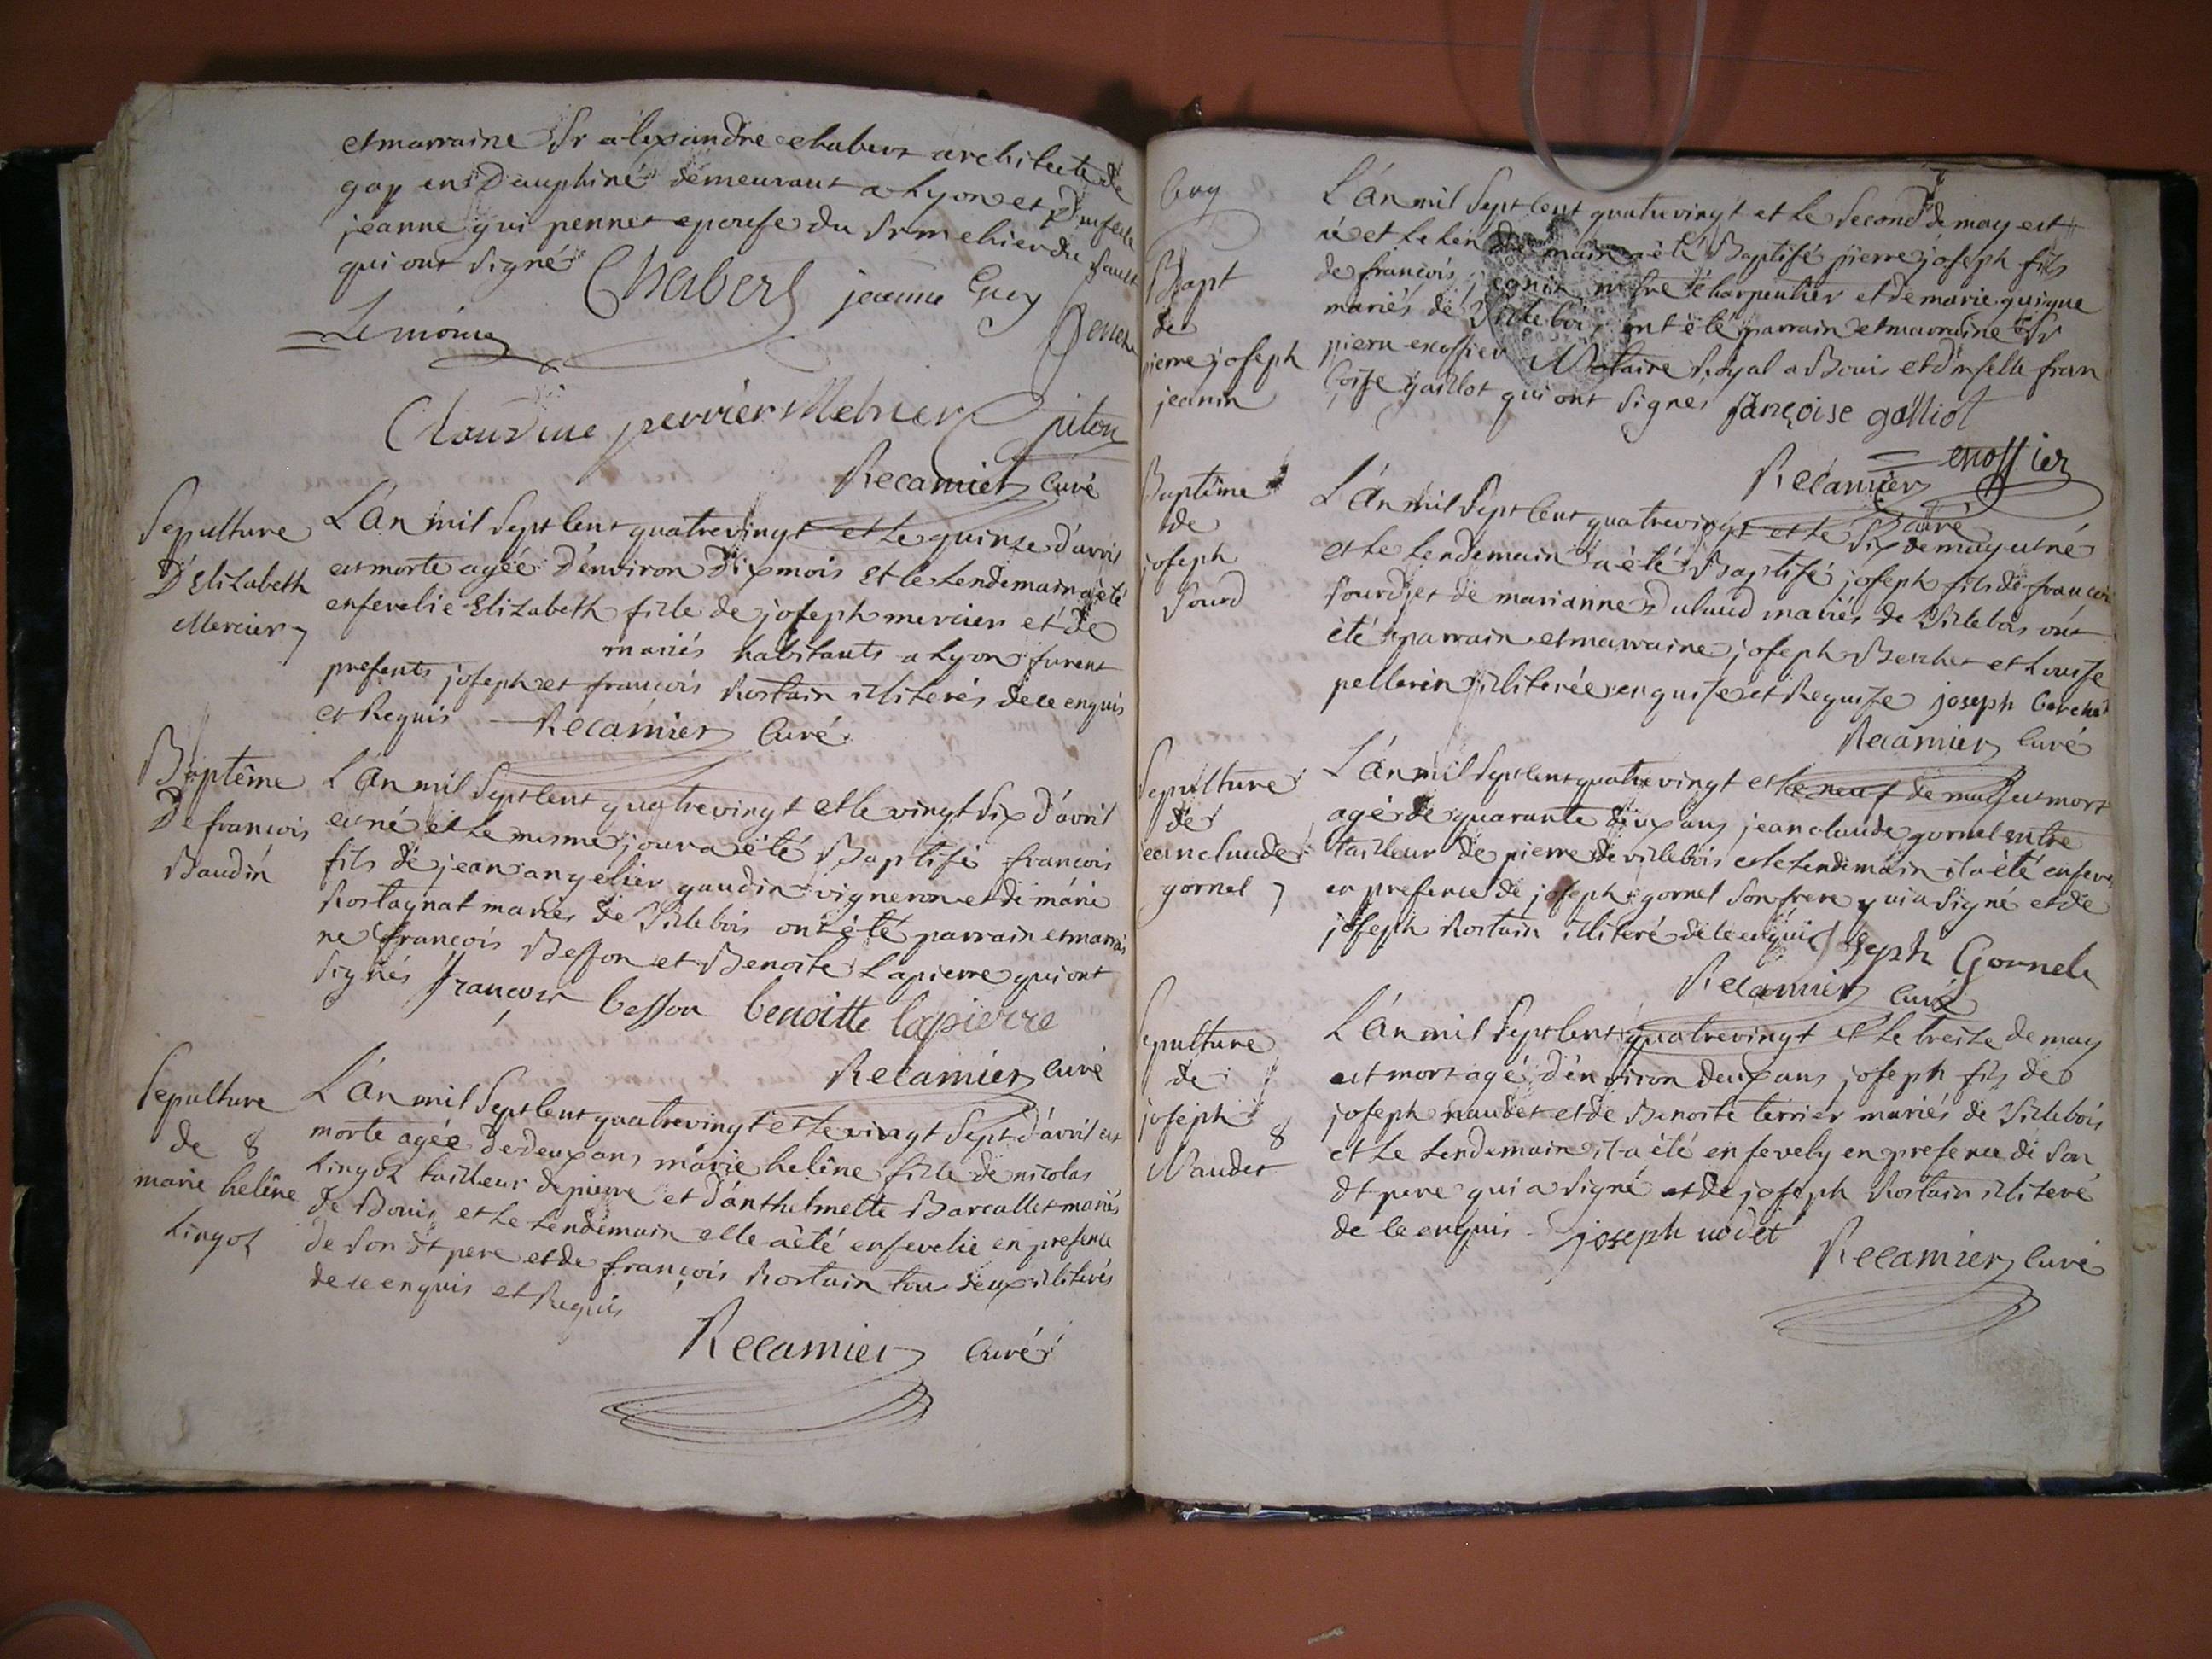 et marraine Sr alexandre chabert architecte de
gap en Dauphiné demeurant a Lyon et Dmselle
jeanne qui pennet epouse du Sr mehier du Sault
qui ont Signé Chabert jeanne
Lemoine
Claudine perrier Mehier piton
Recamier Curé
Sepulture
D'Elizabeth
Mercier 7
L'an mil Sept Cent quatrevingt et le quinze d'avril
est morte agée D'environ Dix mois et le Lendemain a été
ensevelie Elizabeth fille de joseph mercier et de
mariés habitants a Lyon furent
presents joseph et françois Rostain illiterés de ce enquis
et Requis Recamier Curé
Baptême
De françois
Baudin
L'an mil Sept Cent quatrevingt et le vingt Six d'avril
est né et le mesme jour a été Baptisé françois
fils de jean angelier gaudin vigneron et de marie
Rostagnat mariés de Villebois ont été parrain et marrai
ne françois Besson et Benoite Lapierre qui ont
Signés françois besson benoitte lapierre
Recamier Curé
Sepulture
de 8
marie heléne
Lingot
L'an mil Sept Cent quatrevingt et le vingt Sept d'avril est
morte agée De deux ans marie heléne fille de nicolas
Lingot tailleur de pierre et d'anthelmette Barcallet mariés
de Bouis et le Lendemain elle a été ensevelie en presence
de Son dt pere et de françois Rostain tou deux illiterés
de ce enquis et Requis
Recamier Curé
Bapt
de
pierre joseph
jeanin
L'an mil Sept Cent quatrevingt et le Second de may est
né et le Lendemain a été Baptisé pierre joseph fils
de françois jeanin mtre charpentier et de marie guigue
mariés de Villebois ont été parrain et marraine Sr
pierre enossier Notaire Royal a Bouis et Dmselle fran
Coise gaillot qui ont Signés françoise galliot
enossier
Recamier Curé
Baptême
de
joseph
Sourd
L'an mil Sept Cent quatrevingt et le Six de may est né
et le Lendemain a été Baptisé joseph fils de françois
Sourd et de marianne Dulaud mariés de Villebois ont
été parrain et marraine joseph Berchet et Louise
pellerin illiterée enquise et Requise joseph berchet
Recamier Curé
Sepulture
de
jean claude
gornel 7
L'an mil Sept Cent quatrevingt et le neuf de may est mort
agé de quarante deux ans jean claude gornel mtre
tailleur de pierre de villebois et le Lendemain il a été enseve
en presence de joseph gornel Son frere qui a Signé et de
joseph Rostain illiteré de ce enquis Joseph Gornel
Recamier Curé
Sepulture
de
joseph 8
Naudet
L'an mil Sept Cent quatrevingt et le treize de may
est mort agé d'environ deux ans joseph fils de
joseph naudet et de Benoite terrier mariés de Villebois
et le Lendemain il a été ensevely en presence de Son
dt pere qui a Signé et de joseph Rostain illiteré
de ce enquis joseph nodet
Recamier Curé